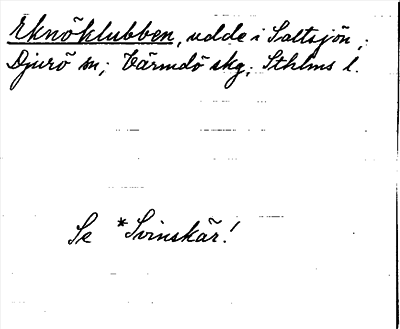 Eknöklubben, udde i Saltsjön;
Djurö sn; Värmdö skg; Sthlms l.
Se *Svinskär!